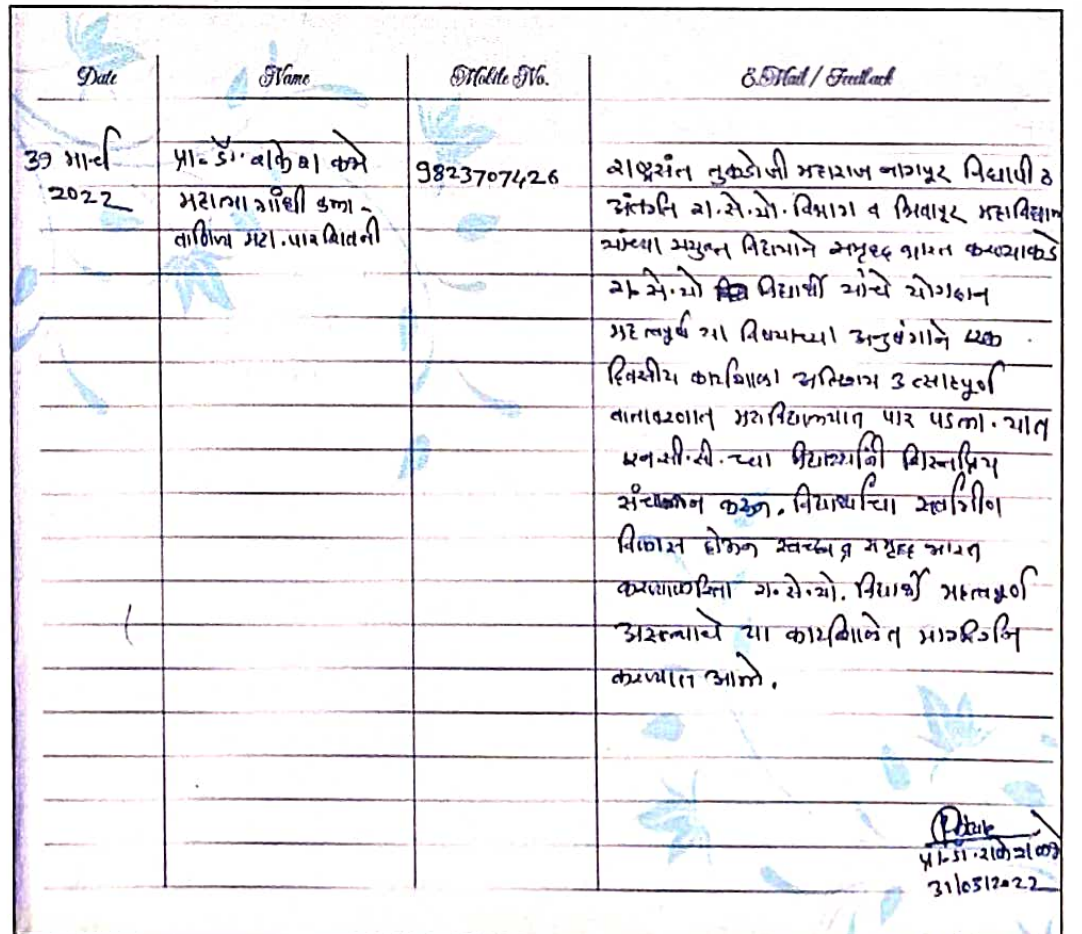 Date Name Mobile No. E.Mail / Feedback
३१ मार्च
2022
प्रा. डॉ. राकेश कभे
महात्मा गांधी कला -
वाणिज्य महा. पारशिवनी
9823707426
राष्ट्रसंत तुकडोजी महाराज नागपूर विद्यापीठ
अंतर्गत रा.से.यो. विभाग व भिवापूर महाविद्यालय
यांच्या संयुक्त विद्यमाने समृद्ध भारत करण्याकडे
रा.से.यो विद्यार्थी यांचे योगदान
महत्वपूर्ण या विषयाच्या अनुषंगाने एक
दिवसीय कार्यशाळा अतिशय उत्साहपूर्ण
वातावरणात महाविद्यालयात पार पडला. यात
एन.सी.सी.च्या विद्यार्थ्यांनी शिस्तप्रिय
संचालन करून. विद्यार्थ्यांचा सर्वांगीण
विकास होऊन स्वच्छ व समृद्ध भारत
करण्याकरिता रा.से.यो. विद्यार्थी महत्वपूर्ण
असल्याचे या कार्यशाळेत मार्गदर्शन
करण्यात आले.
प्रा. डॉ. राकेश कभे
31/03/2022